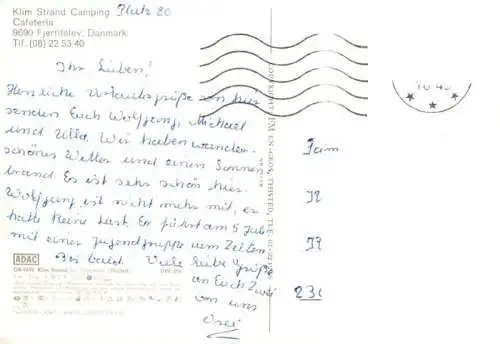 Klim Strand Camping Platz 20
Cafeteria
9690 Fjerritslev, Danmark
Tlf. (08) 22 53 40
Ihr Lieben!
Herzliche Urlaubsgrüße von hier
senden Euch Wolfgang, Michael
und Ulla. Wir haben wunder-
schönes Wetter und einen Sonnen-
brand. Es ist sehr schön hier.
Wolfgang ist nicht mehr mit, er
hatte keine Lust. Er fährt am 5 Juli
mit einer Jugendgruppe zum Zelten.
Bis bald. Viele liebe Grüße
an Euch Zwei
von uns
drei
ADAC
COPYRIGHT
THISTED, TLF.
Fam